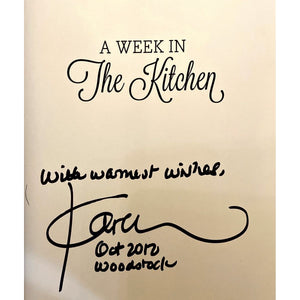 A WEEK IN
The Kitchen
With warmest wishes,
Karen
Oct 2012
Woodstock